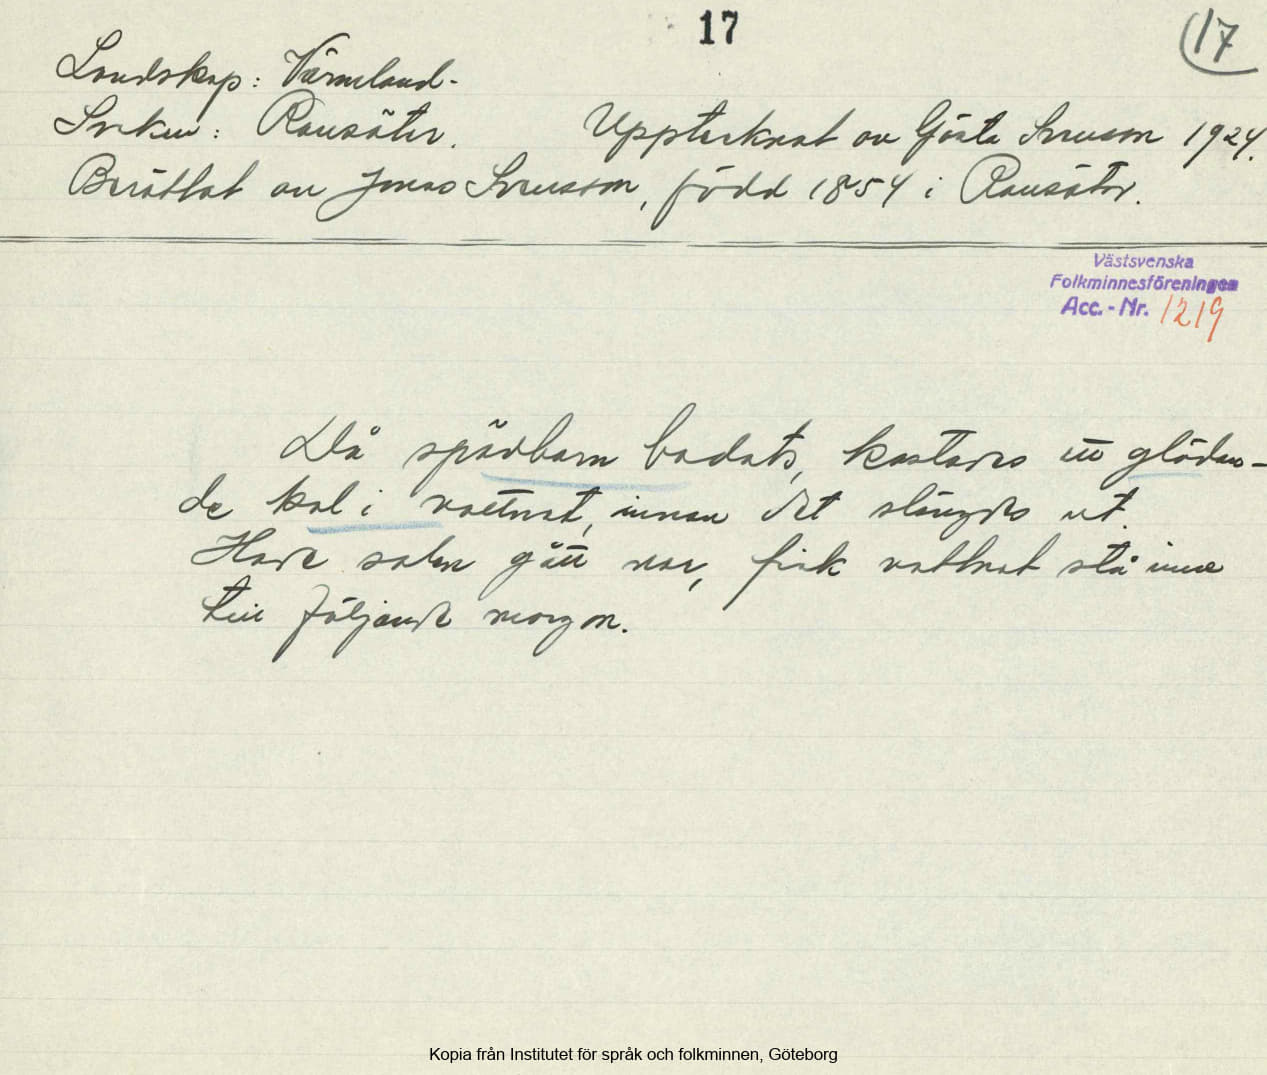 17
17
Landskap: Värmland.
Socken: Ransäter. Upptecknat av Gösta Svensson 1924.
Berättat av Jonas Svensson, född 1854 i Ransäter.
Västsvenska
Folkminnesföreningen
Acc.-Nr. 1219
Då spädbarn badats, kastades ett glödan-
de kol i vattnet, innan det slängdes ut.
Hade solen gått ner, fick vattnet stå inne
till följande morgon.
Kopia från Institutet för språk och folkminnen, Göteborg